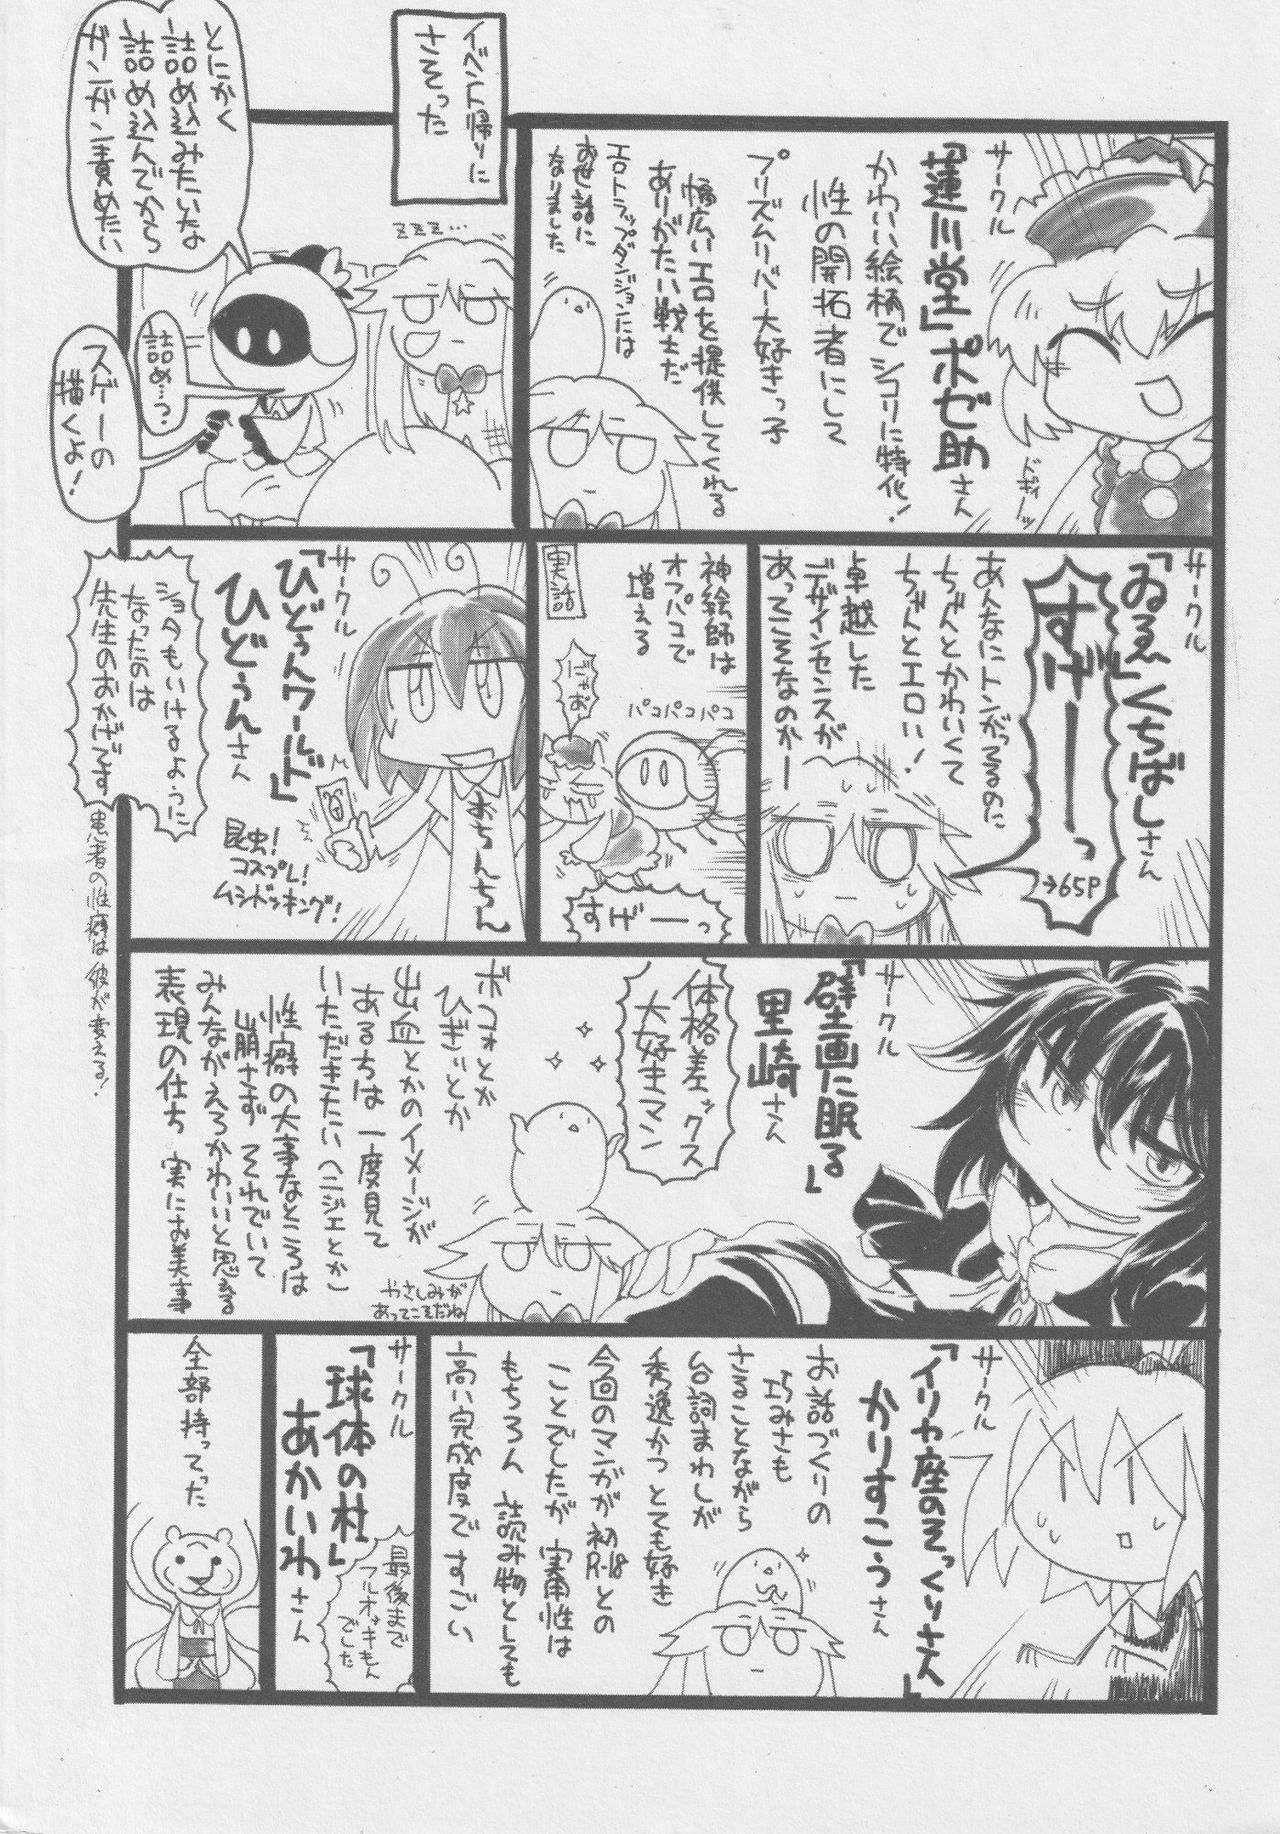 サークル
「蓮川堂」ポゼ助さん
かわいい絵柄でシコリに特化!
性の開拓者にして
プリズムリバー大好きっ子
幅広いエロを提供してくれる
ありがたい戦士だ
エロトラップダンジョンには
お世話に
なりました
イベント帰りに
さそった
zzz…
とにかく
詰め込みたいな
詰め込んでから
ガンガン責めたい
詰め…?
スゲーの
描くよ!
サークル
「ゐゑ」くちばしさん
すげーーっ
→65P
あんなにトンがってるのに
ちゃんとかわいくて
ちゃんとエロい!
卓越した
デザインセンスが
あってこそなのかー
神絵師は
オフパコで
増える
実話
パコパコパコ
にゃお
すげーーっ
サークル
「ひどぅんワールド」
ひどぅんさん
おちんちん
昆虫!
コスプレ!
ムシドッキング!
ショタもいけるように
なったのは
先生のおかげです
患者の性癖は彼が変える!
サークル
「壁画に眠る」
里崎さん
体格差ックス
大好きマン
ボコォとか
ひぎぃとか
出血とかのイメージが
あるちは一度見て
いただきたい ヘニジェとか
性癖の大事なところは
崩さず それでいて
みんながえろかわいいと思える
表現の仕方 実にお美事
やさしみが
あってこそだね
サークル
「イリヤ座のそっくりさん」
かりすこうさん
お話づくりの
巧みさも
さることながら
台詞まわしが
秀逸かつとても好き
今回のマンガが初R-18との
ことでしたが 実用性は
もちろん 読み物としても
高い完成度です すごい
サークル
「球体の杜」
あかいわさん
最後まで
フルオッキもん
でした
全部持ってった